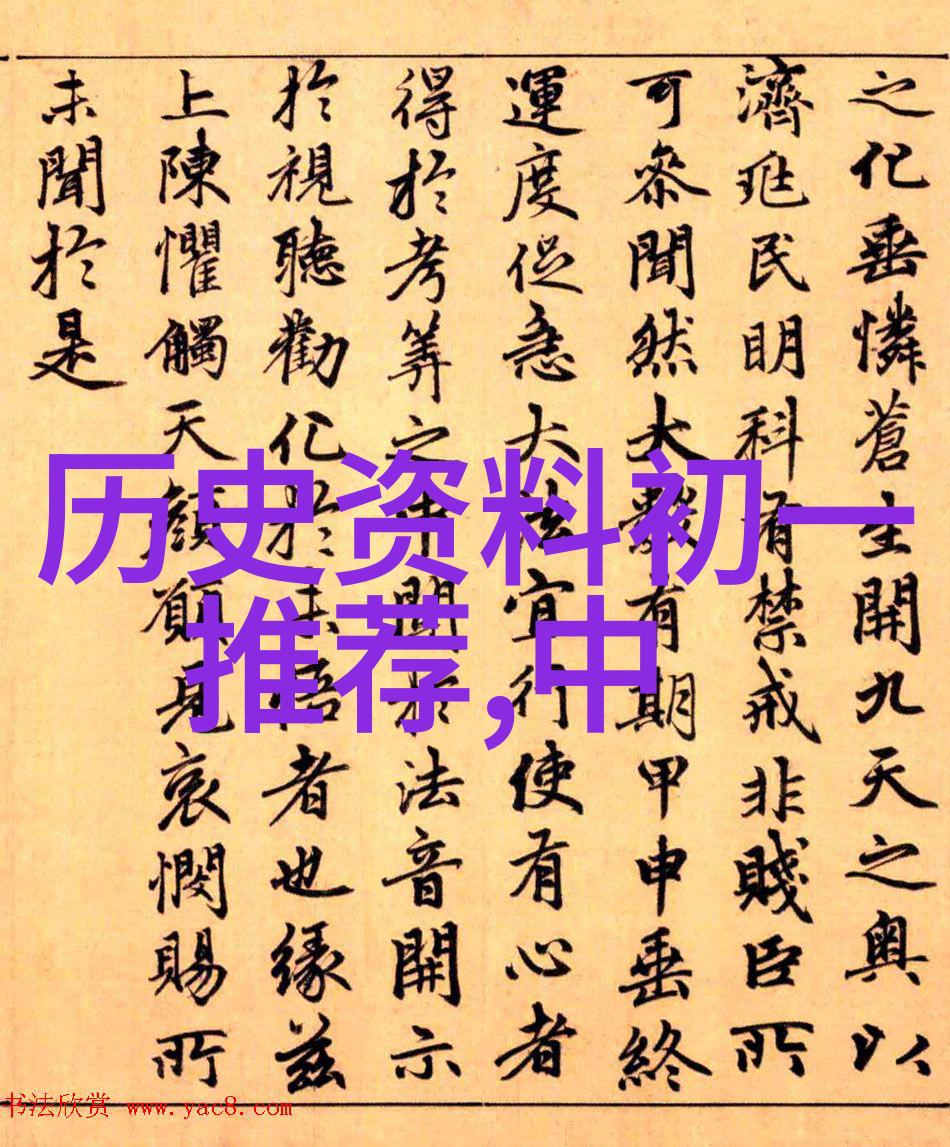 之化垂憐蒼生開九天之奥以
濟兆民明科有禁戒非賤臣所
可叅聞然大數有期甲申垂終
運度促急大法宜行使有心者
得於考筭之中聞於法音開示
於視聽勸化於未悟者也緣茲
上陳懼觸天顔願見哀憫賜所
未聞於是
历史资料初一
推荐,中
书法欣赏 www.yac8.com